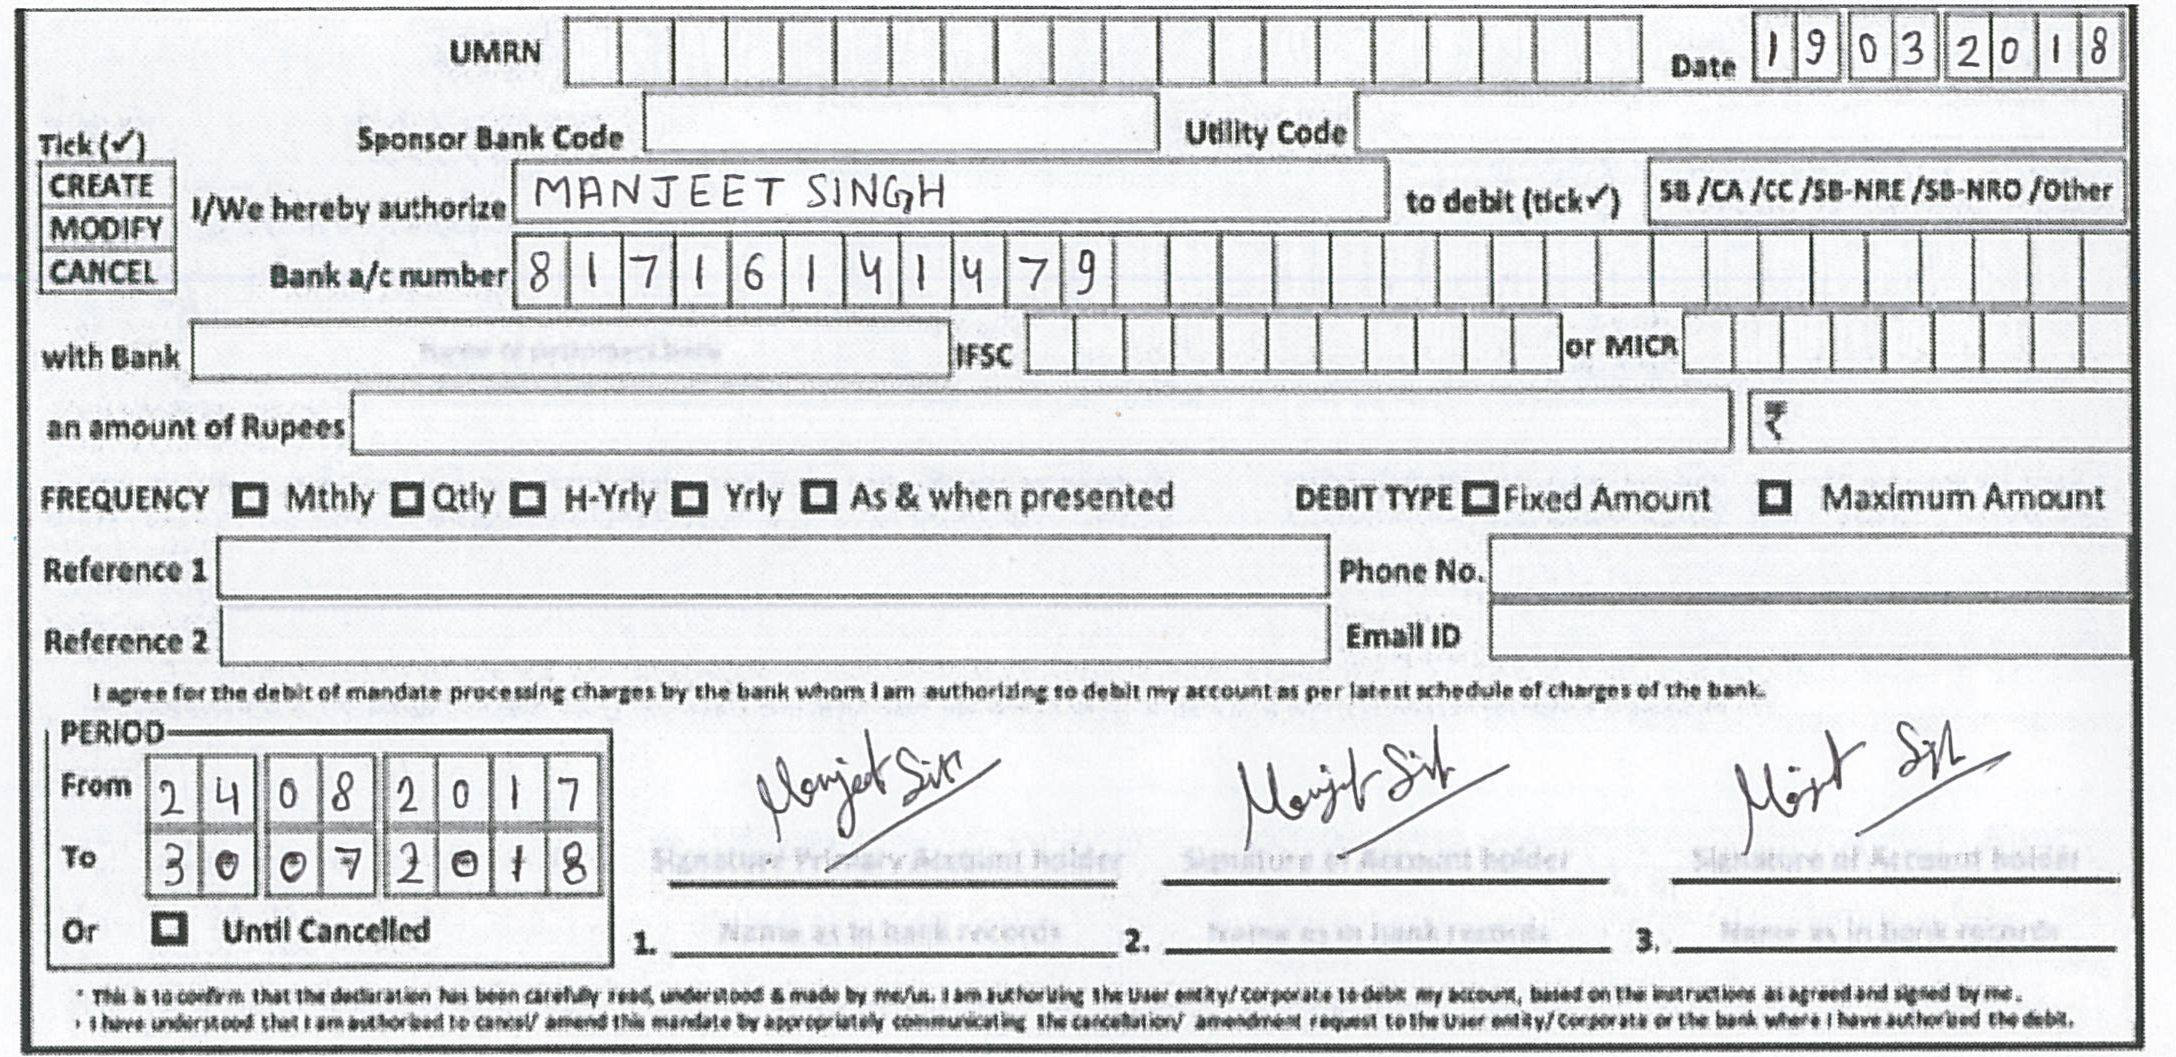 UMRN Date 19032018
Tick (✓) Sponsor Bank Code Utility Code
CREATE
MODIFY
CANCEL
I/We hereby authorize MANJEET SINGH to debit (tick✓) SB /CA /CC /SB-NRE /SB-NRO /Other
Bank a/c number 81716141479
with Bank Name of customers bank IFSC or MICR
an amount of Rupees ₹
FREQUENCY Mthly Qtly H-Yrly Yrly As & when presented DEBIT TYPE Fixed Amount Maximum Amount
Reference 1 Phone No.
Reference 2 Email ID
I agree for the debit of mandate processing charges by the bank whom I am authorizing to debit my account as per latest schedule of charges of the bank.
PERIOD
From 24082017
To 30072018
Or Until Cancelled
Manjeet
Signature Primary Account holder Signature of Account holder Signature of Account holder
1. Name as in bank records 2. Name as in bank records 3. Name as in bank records
* This is to confirm that the declaration has been carefully read, understood & made by me/us. I am authorizing the User entity/ Corporate to debit my account, based on the instructions as agreed and signed by me.
• I have understood that I am authorised to cancel/ amend this mandate by appropriately communicating the cancellation/ amendment request to the User entity/ Corporate or the bank where I have authorized the debit.